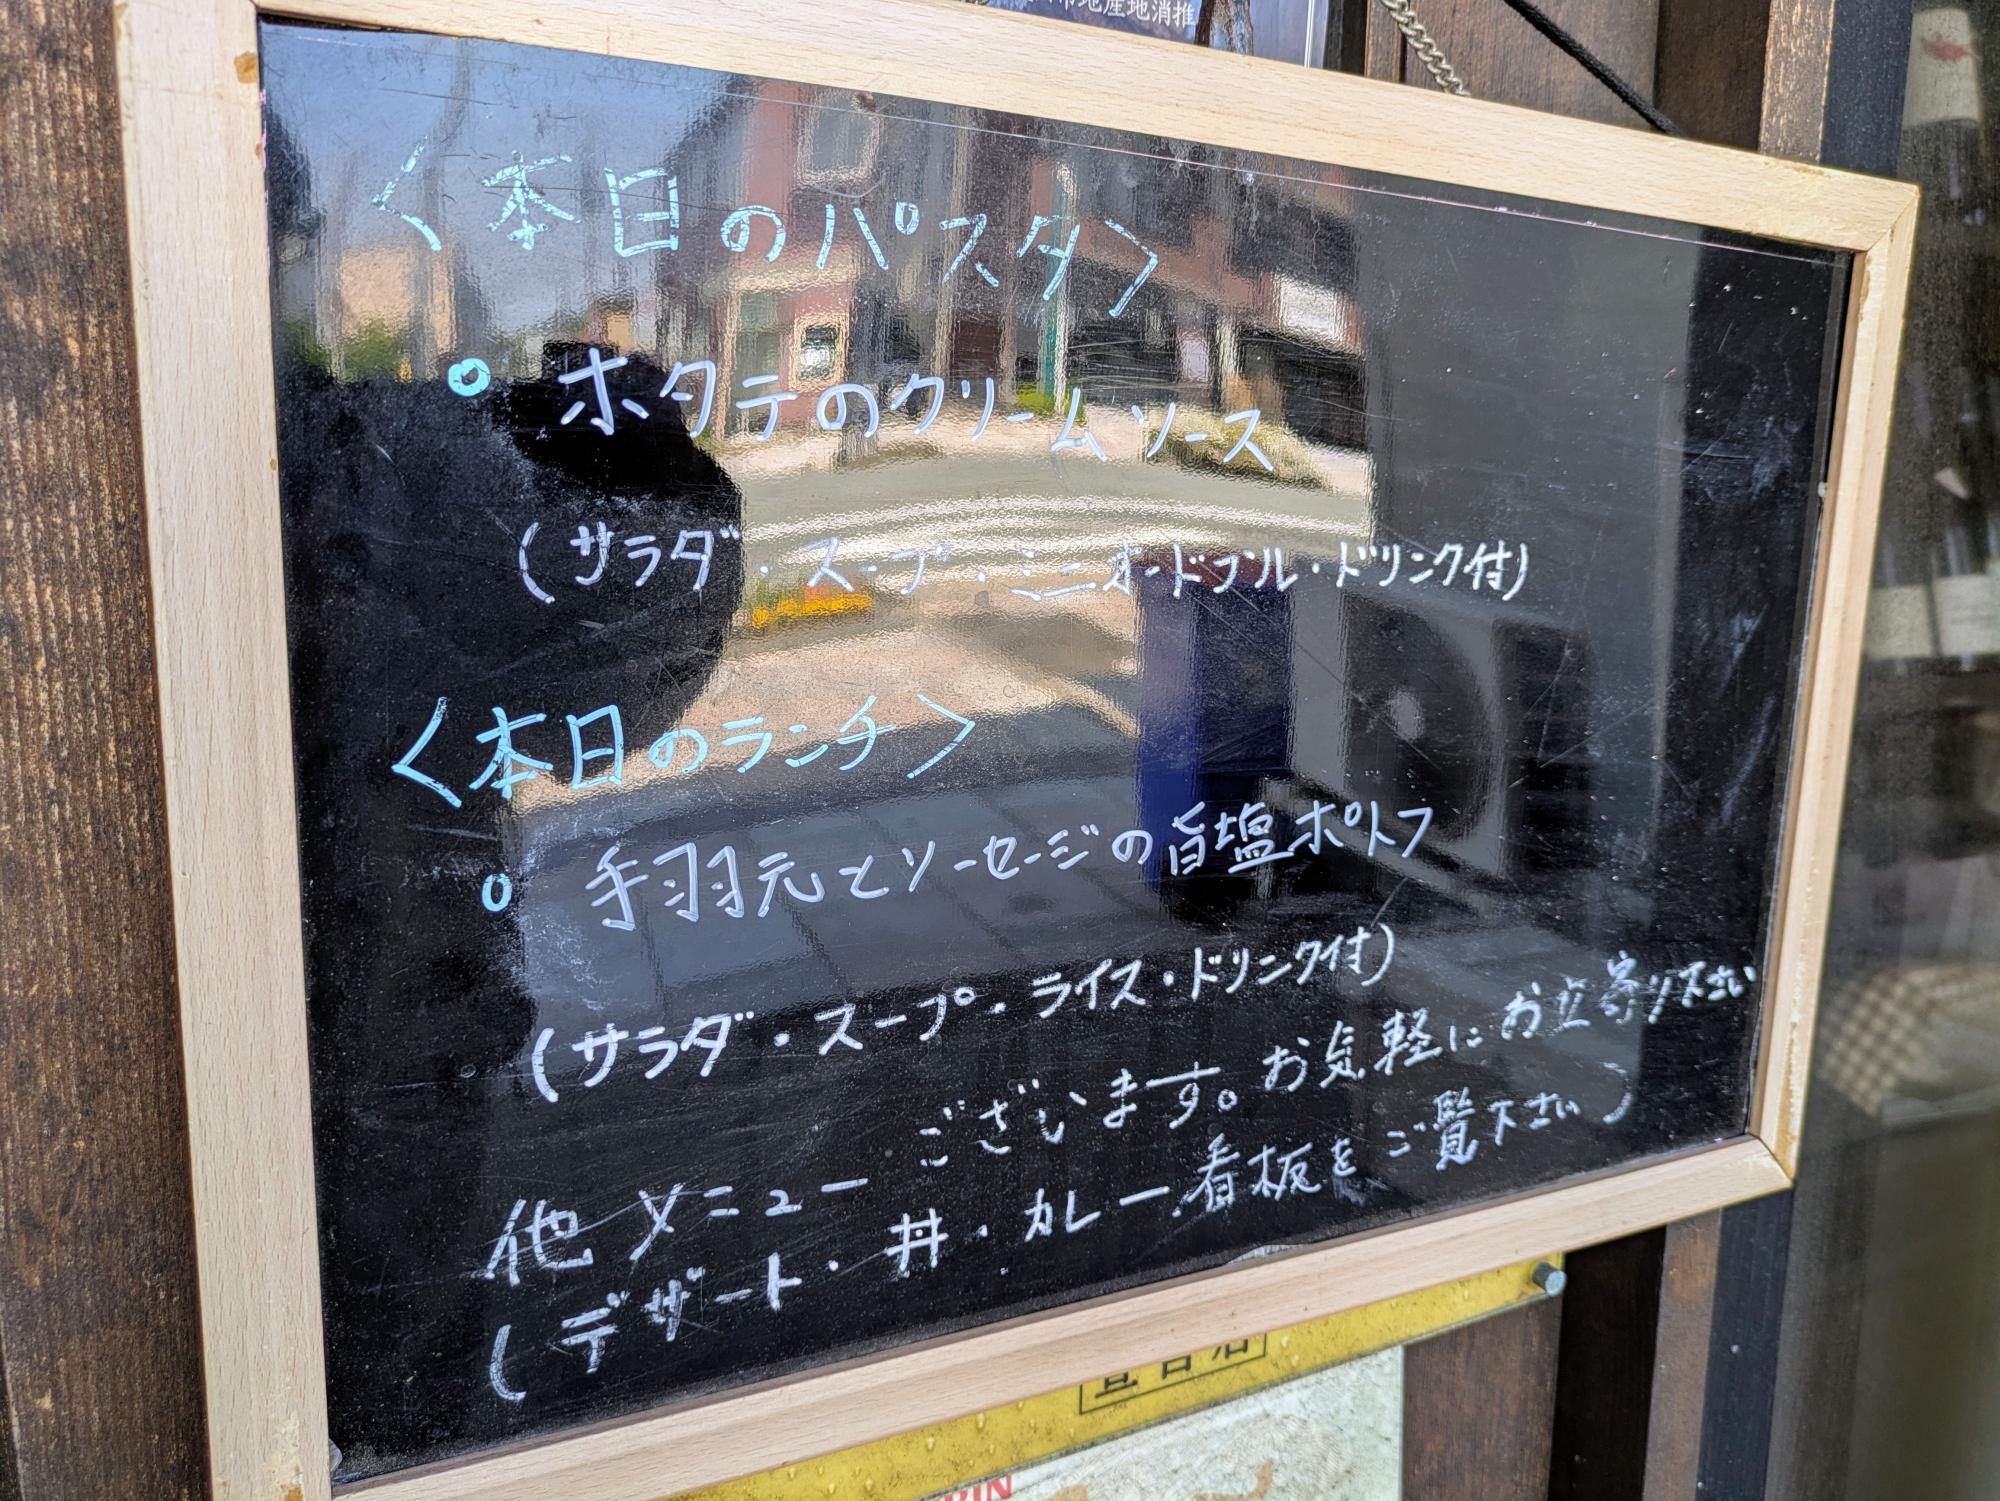 地産地消推
<本日のパスタ>
○ ホタテのクリームソース
(サラダ・スープ・ミニオードブル・ドリンク付)
<本日のランチ>
○ 手羽元とソーセージの旨塩ポトフ
(サラダ・スープ・ライス・ドリンク付)
他メニューございます。お気軽にお立寄り下さい
(デザート・丼・カレー.看板をご覧下さい)
RIN